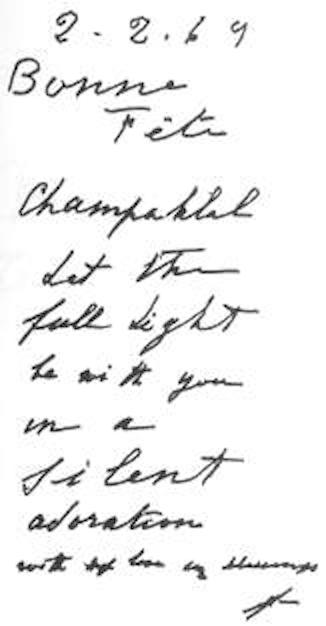 2.2.69
Bonne
Fête
Champaklal
Let the
full Light
be with you
in a
silent
adoration
with love blessings